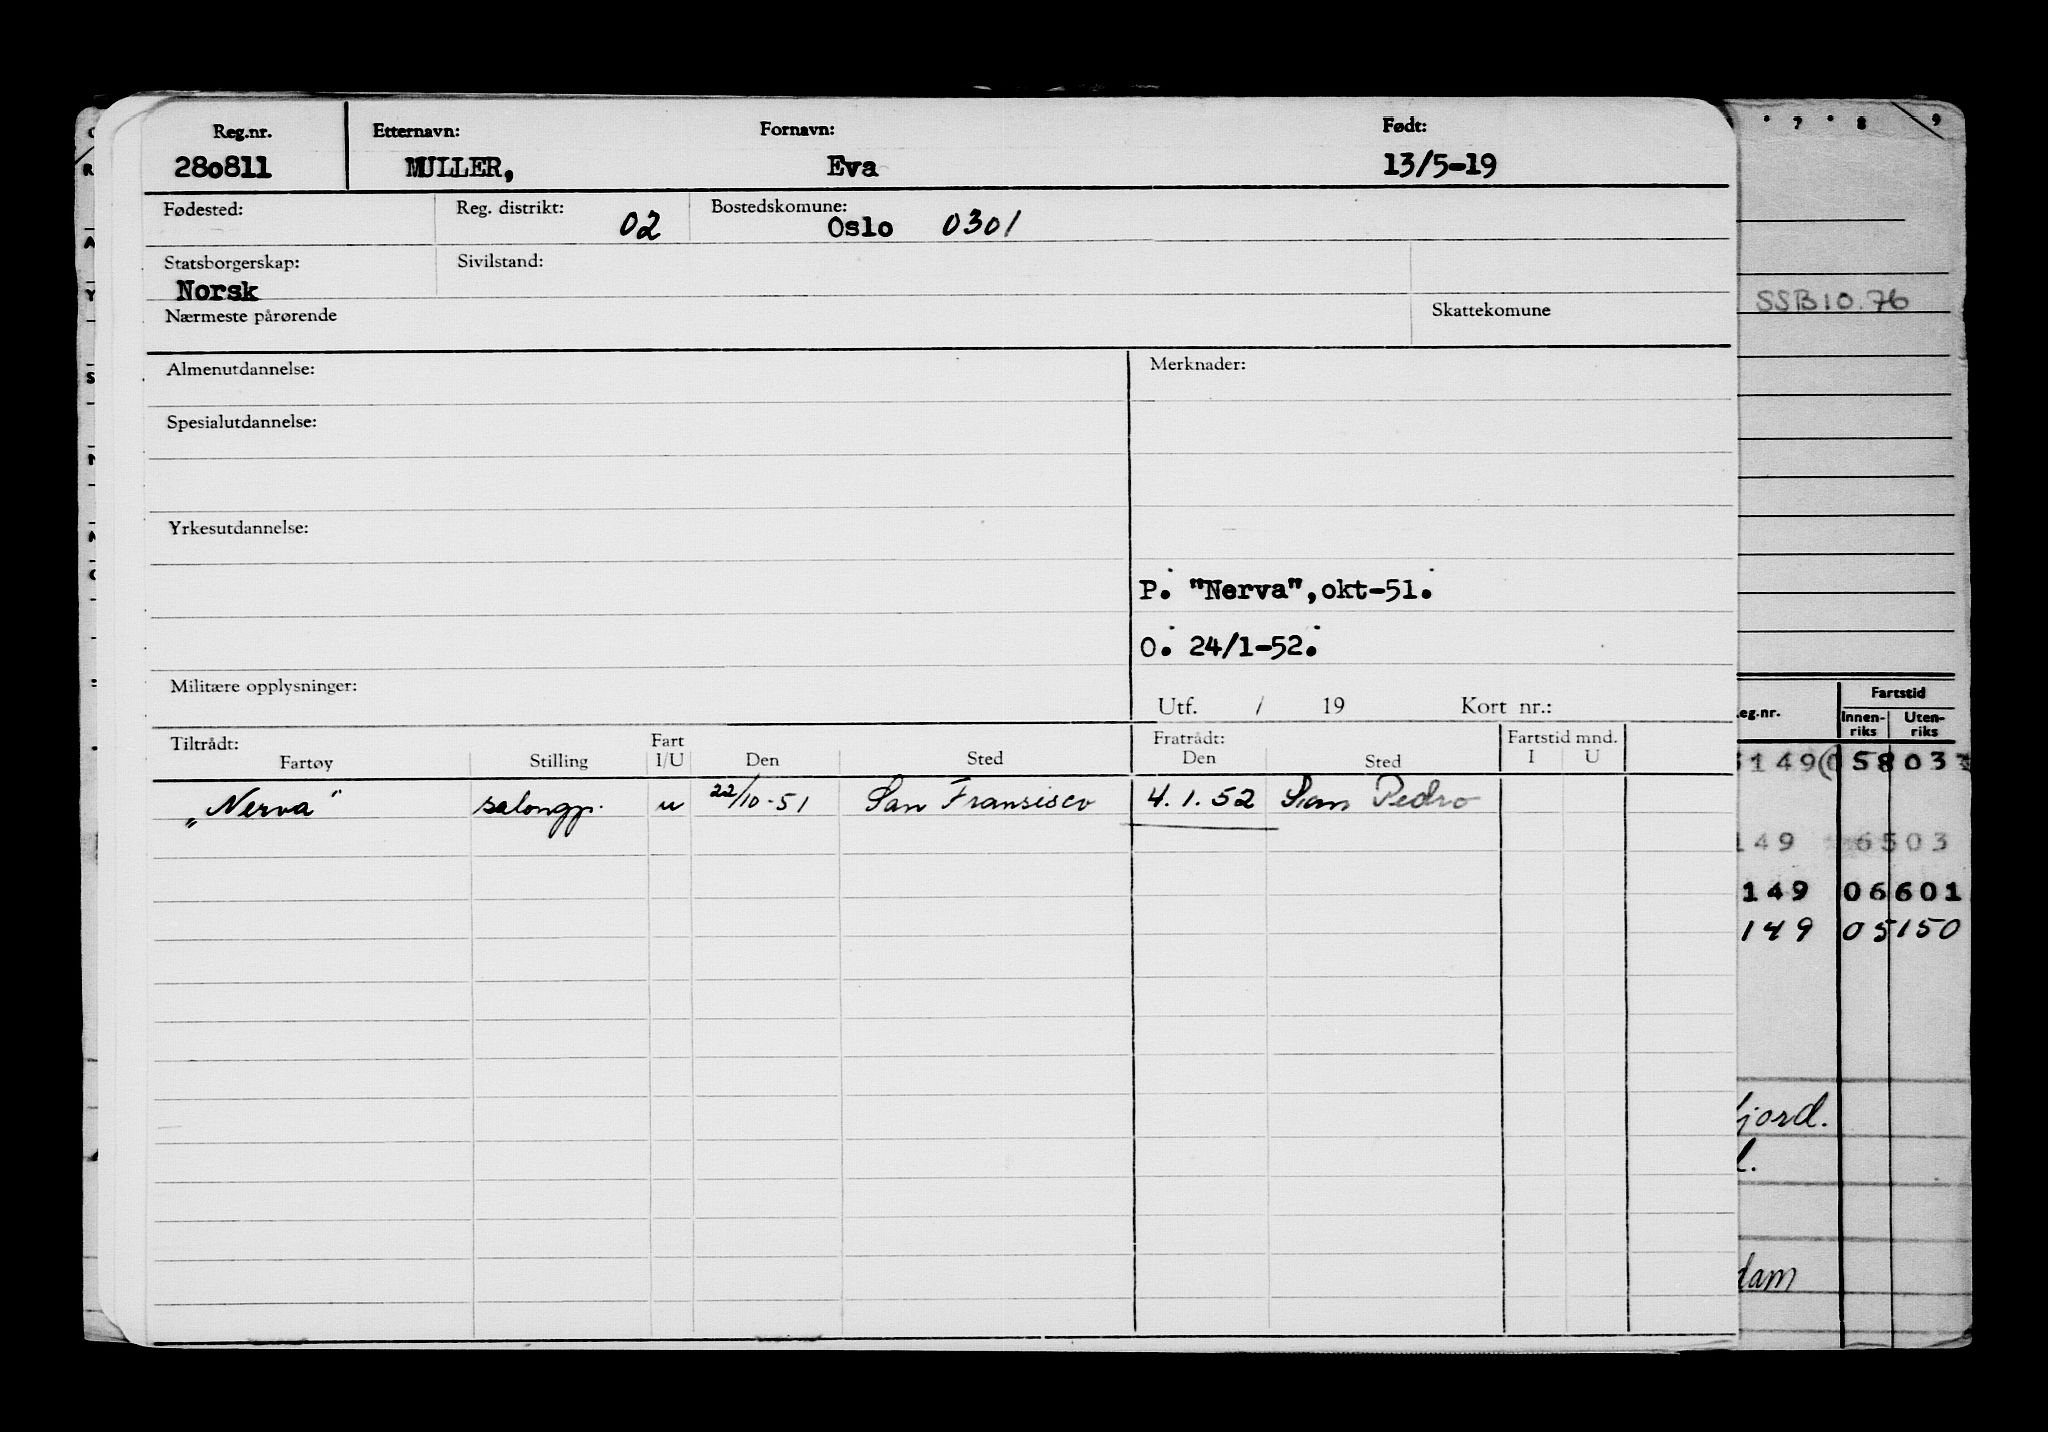 Reg.nr. Etternavn: Fornavn: Født:
280811 MULLER, Eva 13/5-19
Fødested: Reg. distrikt: 02 Bostedskomune: Oslo 0301
Statsborgerskap: Norsk Sivilstand:
Nærmeste pårørende Skattekomune
Almenutdannelse: Merknader:
Spesialutdannelse:
Yrkesutdannelse:
P. "Nerva",okt-51.
O. 24/1-52.
Militære opplysninger:
Utf. / 19 Kort nr.:
Tiltrådt: Fratrådt: Fartstid mnd.
Fartøy Stilling Fart I/U Den Sted Den Sted I U
"Nerva" salongp. u 22/10-51 San Fransisco 4.1.52 San Pedro
7 8 9
SSB10.76
eg.nr. Fartstid
Innen-riks Uten-riks
149 05803
149 6503
149 06601
149 05150
fjord.
dam